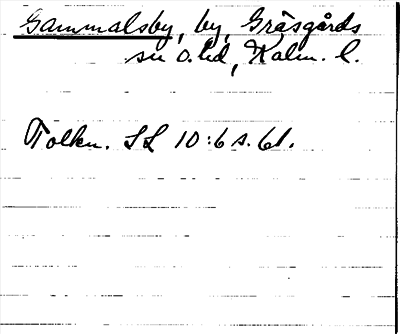 Gammalsby, by, Gräsgårds
sn o. hd, Kalm. l.
Tolkn. SL 10:6 s. 61.